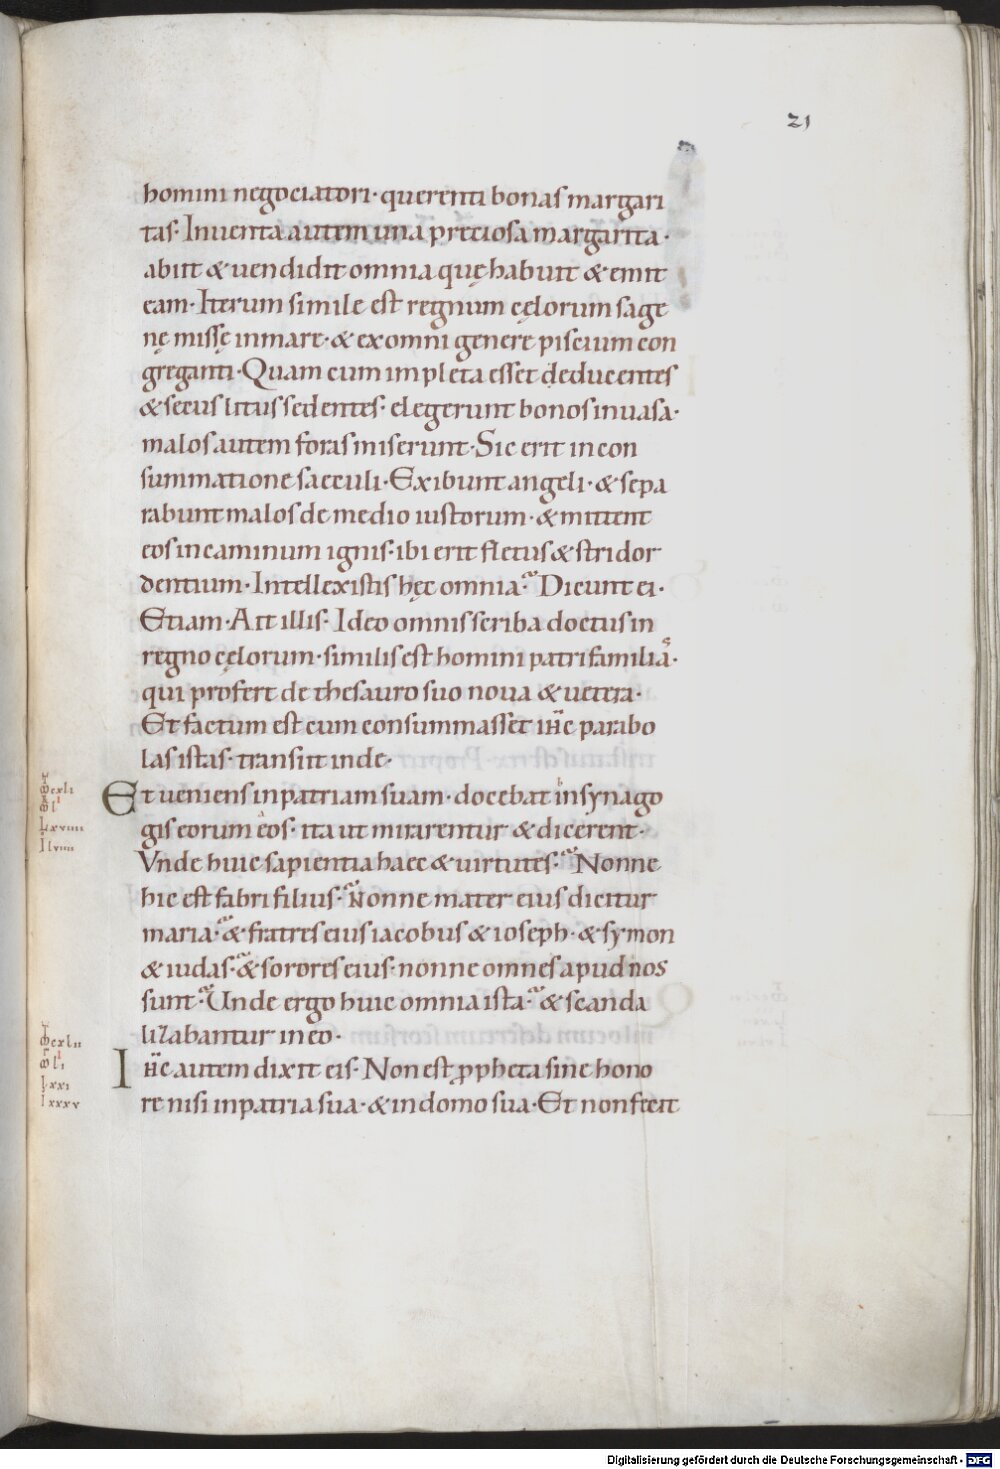 21
homini negociatori· querenti bonas margari
tas· Inventa autem una preciosa margarita·
abiit & vendidit omnia quę habuit & emit
eam· Iterum simile est regnum cęlorum sage
nę missę in mare· & ex omni genere piscium con
greganti· Quam cum impleta esset deducentes
& secus litus sedentes· elegerunt bonos in vasa·
malos autem foras miserunt· Sic erit in con
summatione saeculi· Exibunt angeli· & sepa
rabunt malos de medio iustorum· & mittent
eos in caminum ignis· ibi erit fletus & stridor
dentium· Intellexistis hęc omnia? Dicunt ei·
Etiam· Ait illis· Ideo omnis scriba doctus in
regno cęlorum· similis est homini patri familias·
qui profert de thesauro suo nova & vetera·
Et factum est cum consummasset ihc parabo
las istas· transiit inde·
Et veniens in patriam suam· docebat in synago
gis eorum eos· ita ut mirarentur & dicerent·
Vnde huic sapientia haec & virtutes? Nonne
hic est fabri filius? Nonne mater eius dicitur
maria? & fratres eius iacobus & ioseph· & symon
& iudas? & sorores eius· nonne omnes apud nos
sunt? Unde ergo huic omnia ista? & scanda
lizabantur in eo·
Ihc autem dixit eis· Non est ppheta sine hono
re nisi in patria sua· & in domo sua· Et non fecit
Digitalisierung gefördert durch die Deutsche Forschungsgemeinschaft - DFG